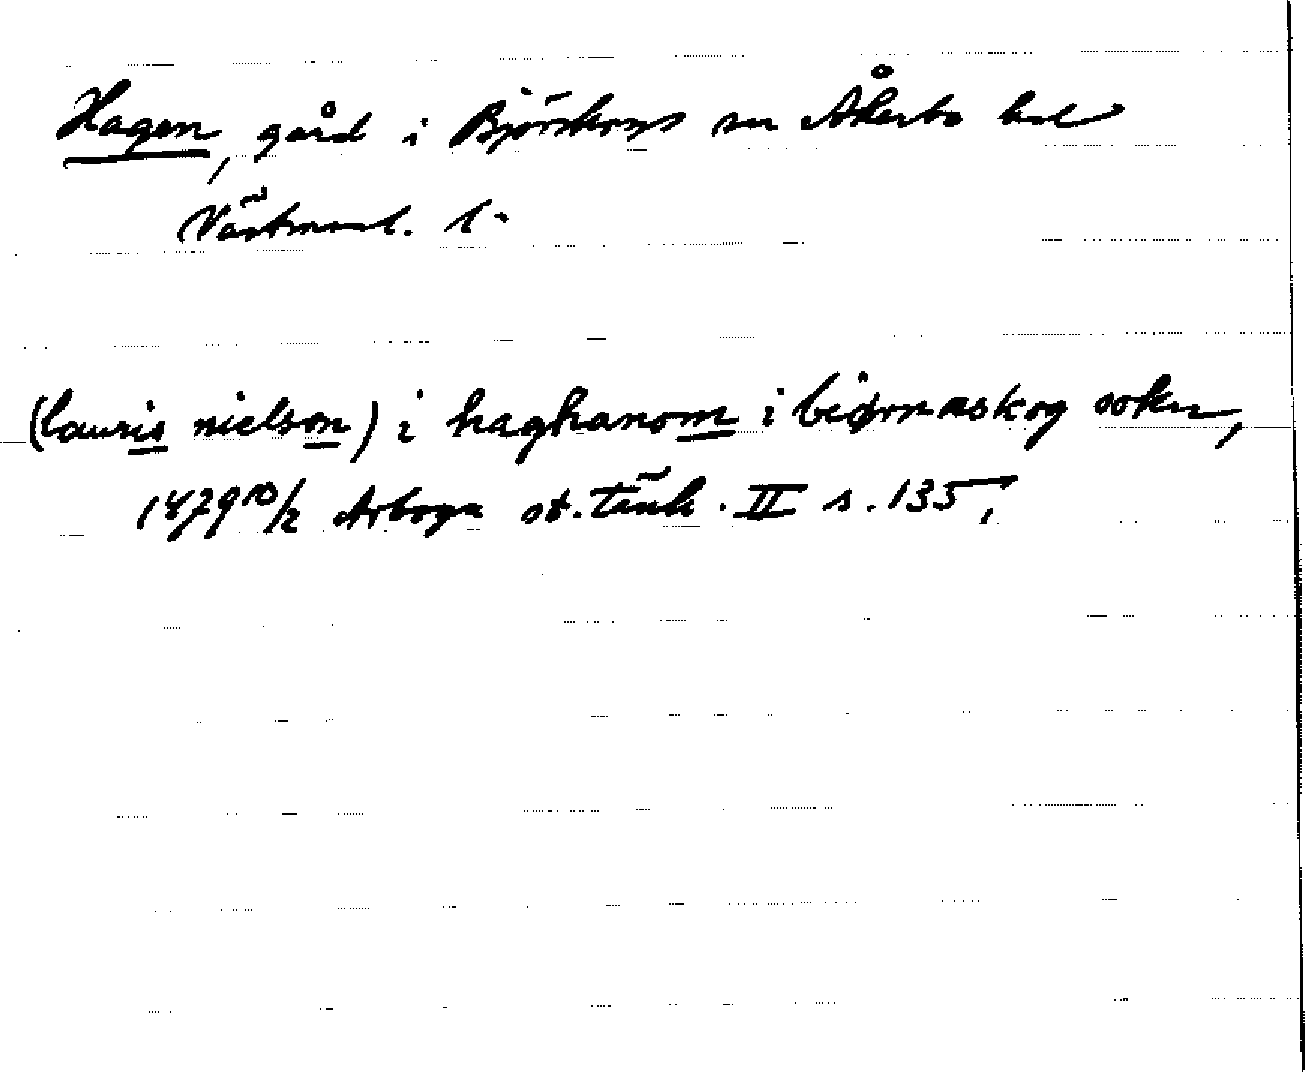 Hagen, gård i Björskogs sn Åkerbo hd
Västmanl. l.
(lauris nielson) i haghanom i biørnaskog sokn,
1479 10/2 Arboga st. tänk. II s. 135,